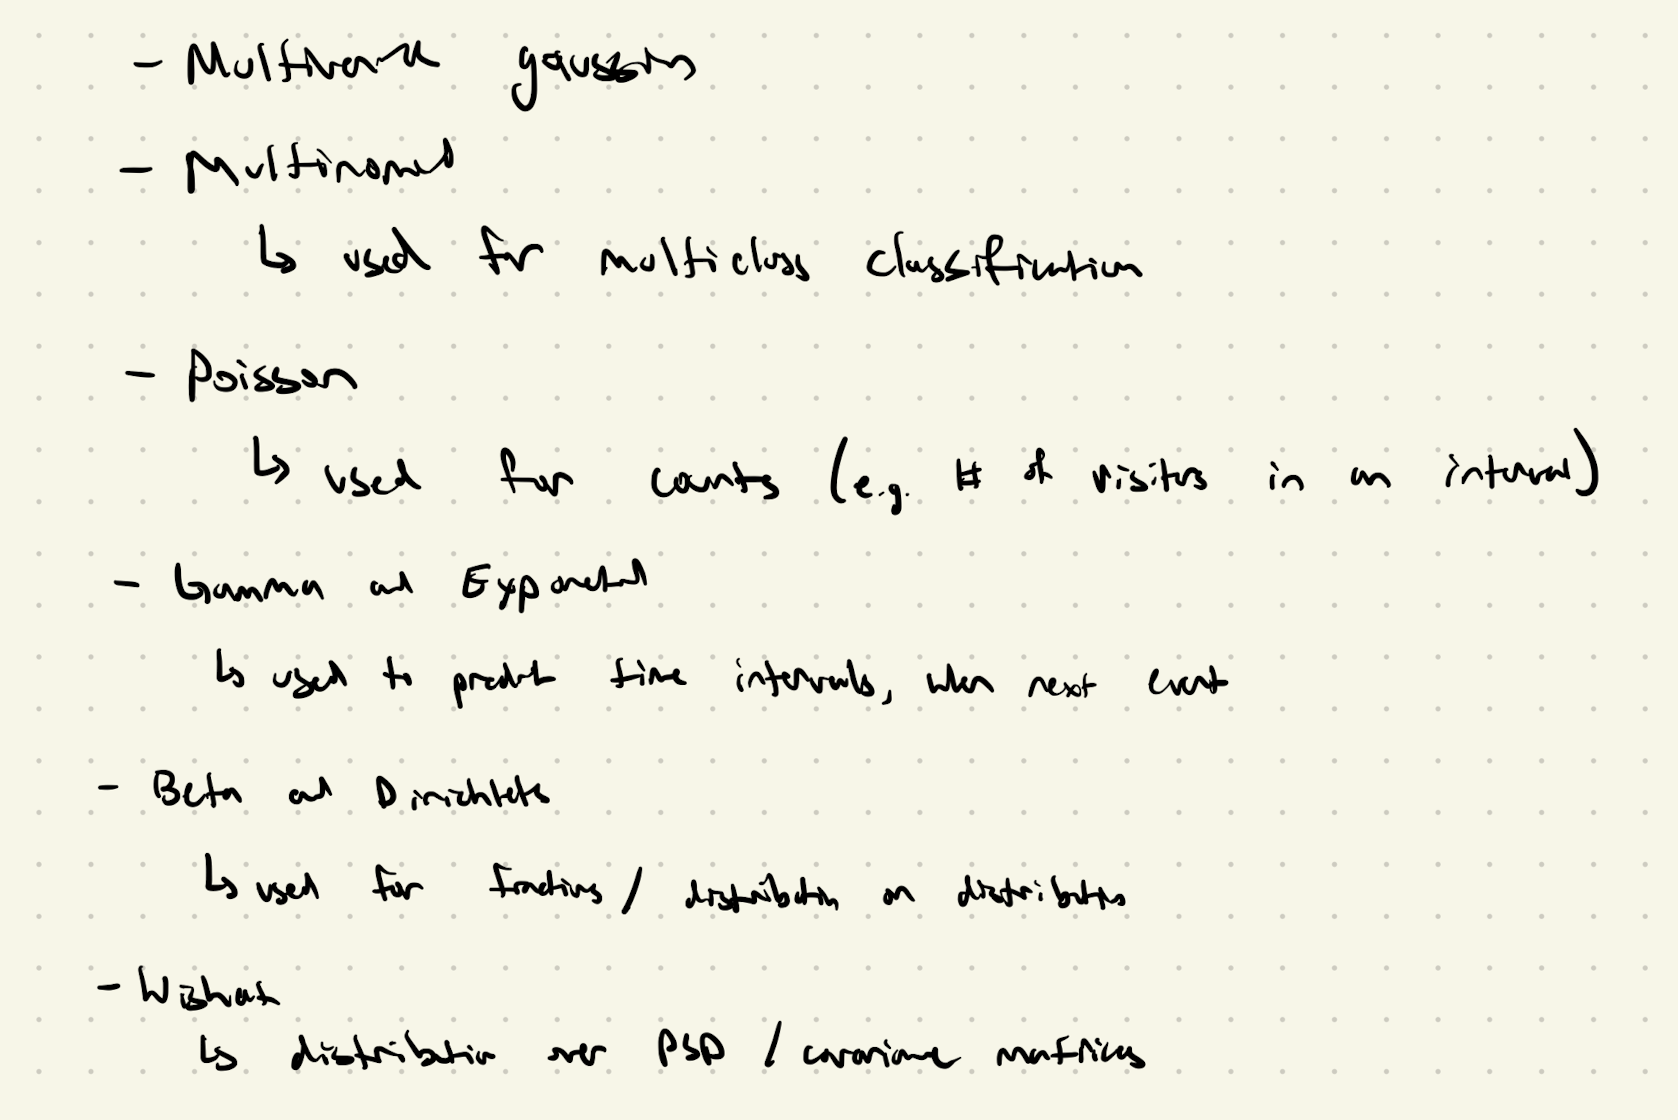 - Multivariate gaussians
- Multinomial
↳ used for multiclass classification
- Poisson
↳ used for counts (e.g. # of visitors in an interval)
- Gamma and Exponential
↳ used to predict time intervals, when next event
- Beta and Dirichlets
↳ used for fractions / distribution on distributions
- Wishart
↳ distribution over PSD / covariance matrices